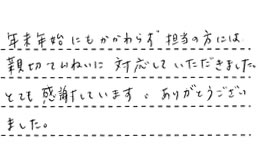 年末年始にもかかわらず 担当の方には
親切ていねいに 対応していただきました。
とても感謝しています。ありがとうござい
ました。